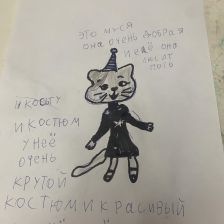 ЭТО МУСЯ
ОНА ОЧЕНЬ ДОБРАЯ
И ЕЩЁ ОНА
И КОСТЮМ
У НЕЁ
ОЧЕНЬ
КРУТОЙ
КОСТЮМ И КРАСИВЫЙ